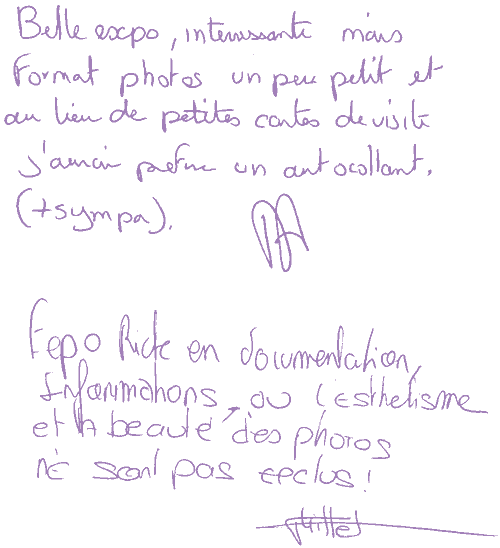 Belle expo, interessante mais
format photos un peu petit et
au lieu de petites cartes de visite
j'aurai préféré un autocollant.
(+sympa).
Expo Riche en documentation,
Informations, où l'esthetisme
et la beauté des photos
ne sont pas exclus !